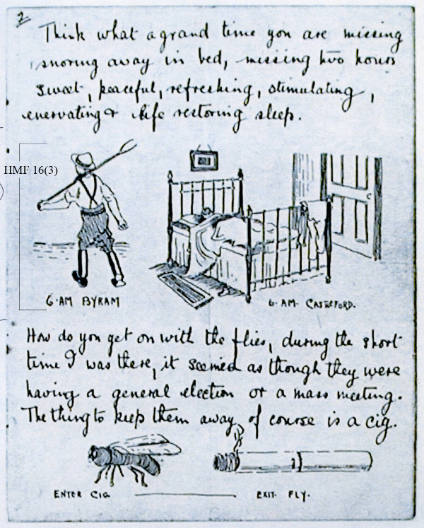 2
Think what a grand time you are missing
snoring away in bed, missing two hours
sweet, peaceful, refreshing, stimulating,
enervating & life restoring sleep.
HMF 16(3)
6·AM BYRAM
6·AM· CASTLEFORD.
How do you get on with the flies, during the short
time I was there, it seemed as though they were
having a general election or a mass meeting.
The thing to keep them away of course is a cig.
ENTER CIG
EXIT· FLY.